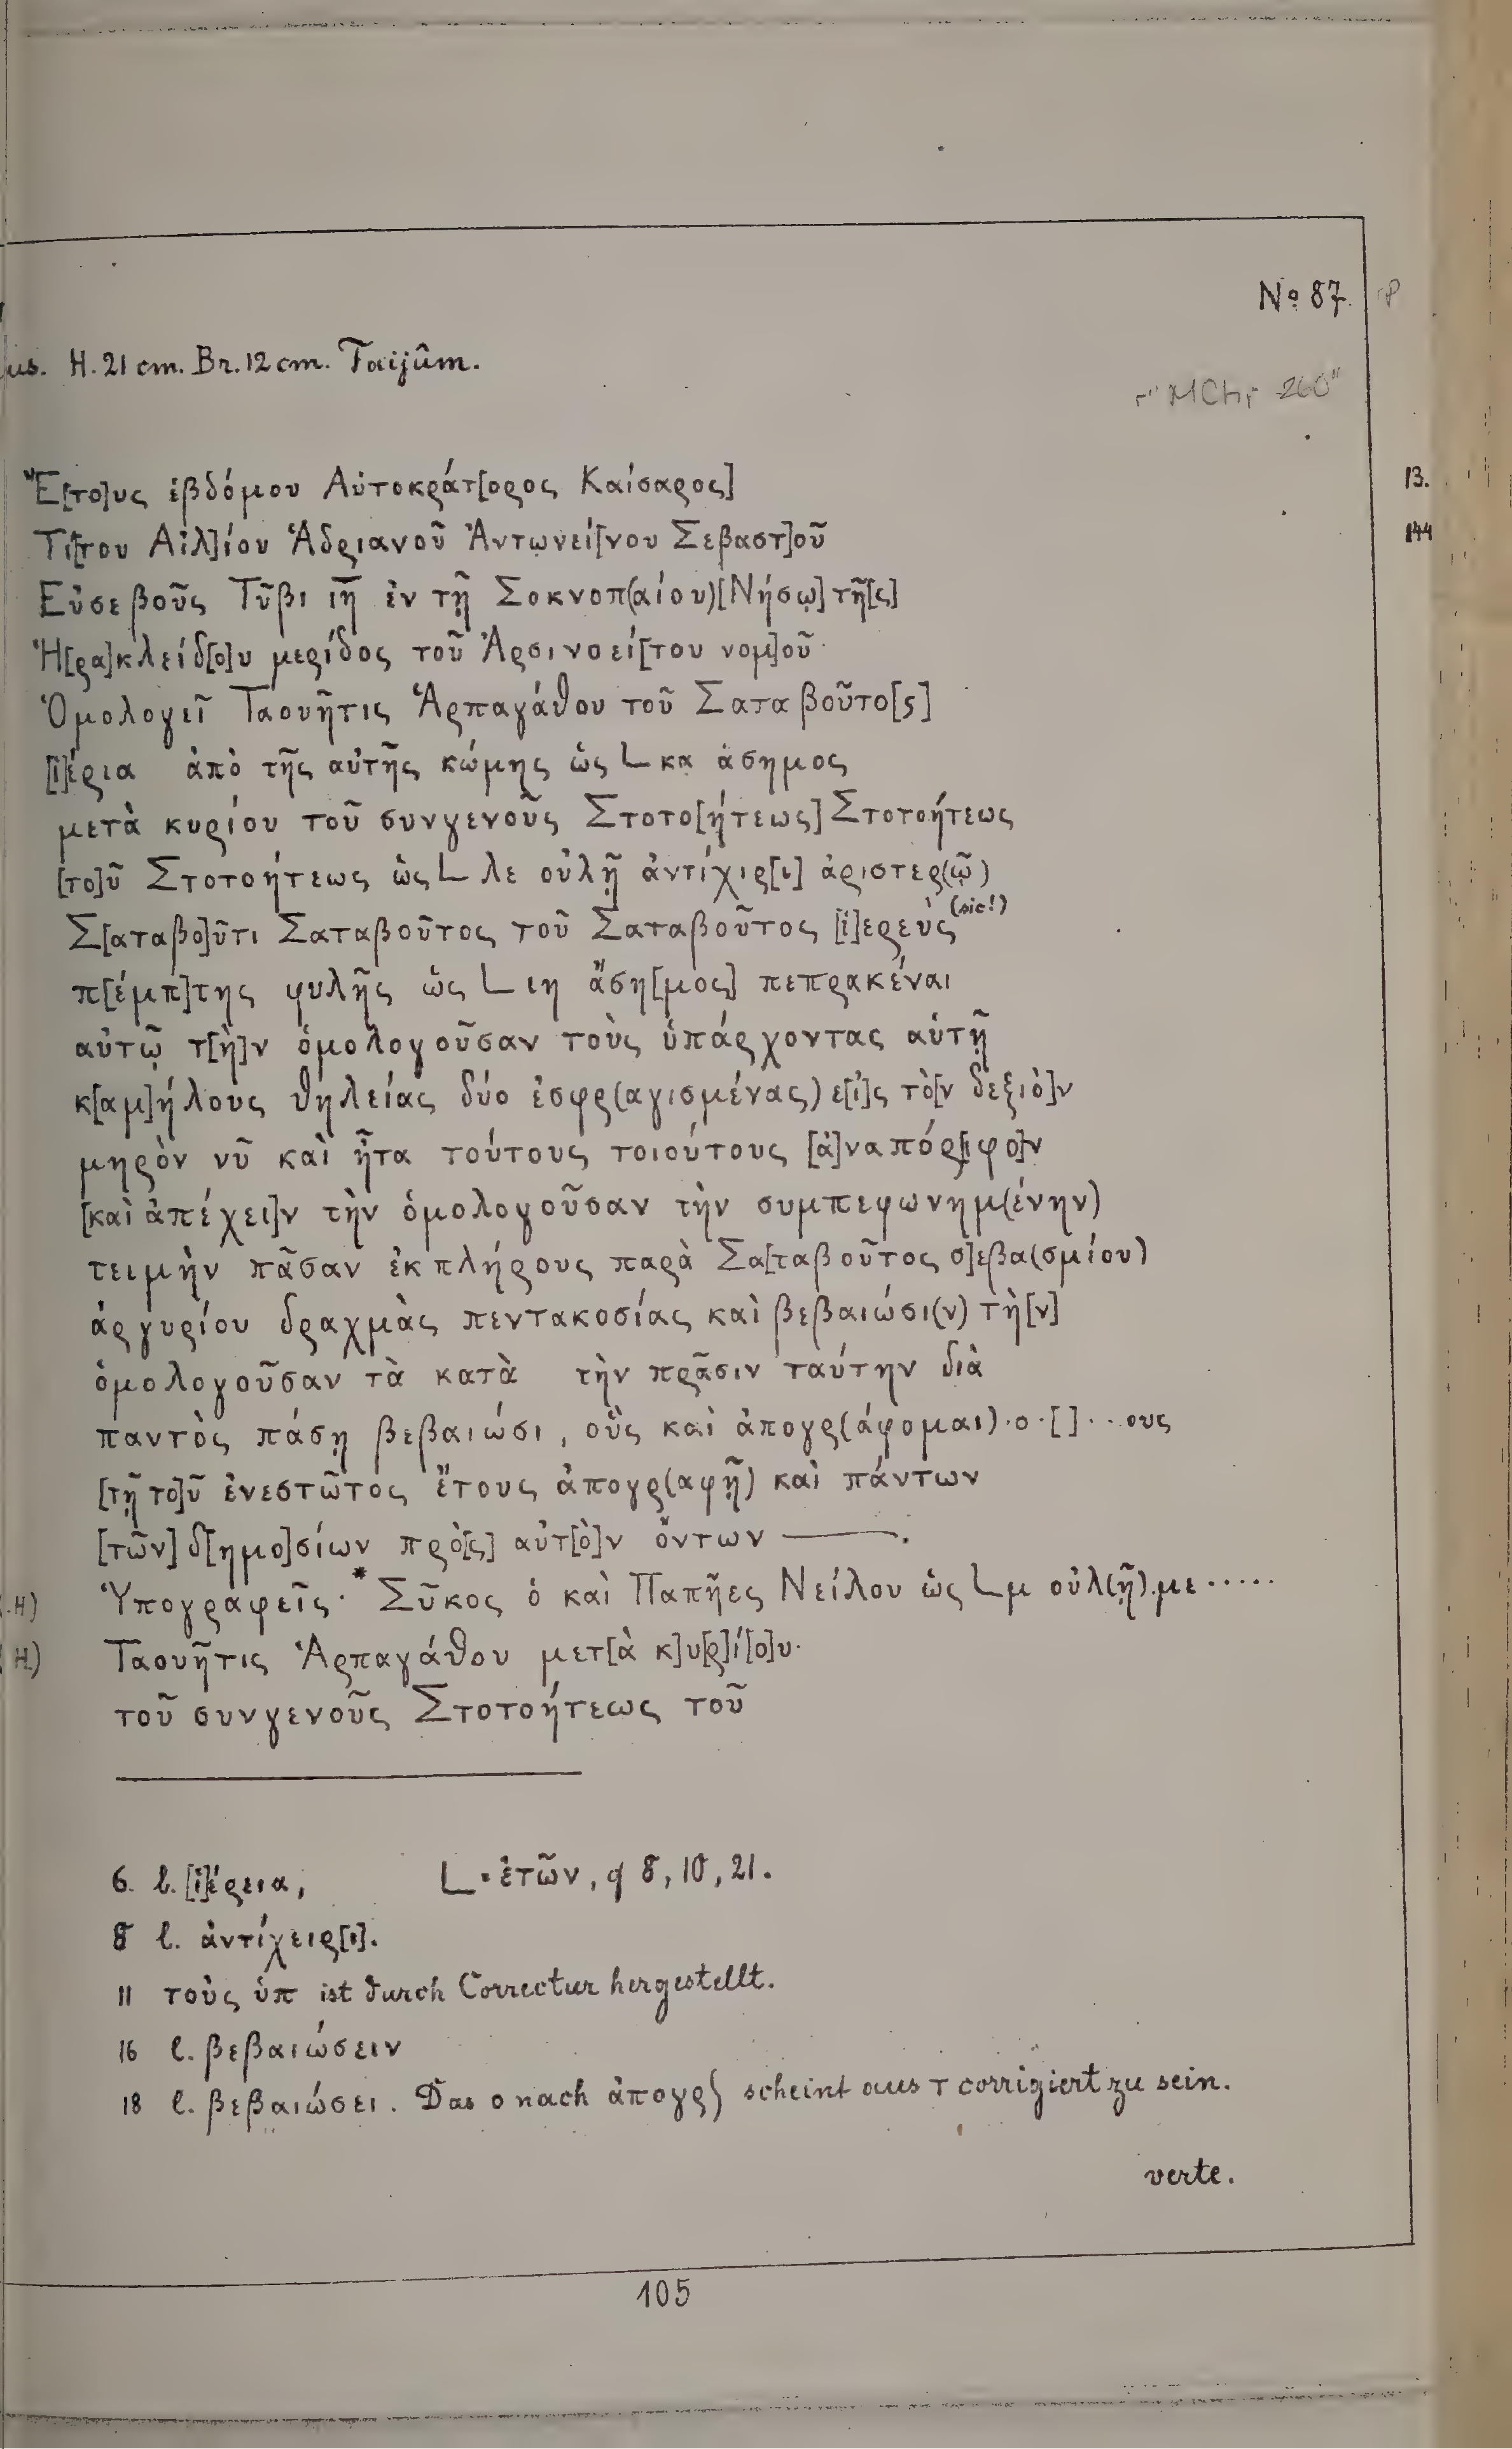 No 87.
us. H. 21 cm. Br. 12 cm. Faijûm.
"MChr 260"
Ἔ[το]υς ἑβδόμου Αὐτοκράτ[ορος Καίσαρος] 13.
Τί[του Αἰλ]ίου Ἁδριανοῦ Ἀντωνεί[νου Σεβαστ]οῦ 144
Εὐσεβοῦς Τῦβι ιη̅ ἐν τῇ Σοκνοπ(αίου) [Νήσῳ] τῆ[ς]
Ἡ[ρα]κλείδ[ο]υ μερίδος τοῦ Ἀρσινοεί[του νομ]οῦ·
Ὁμολογεῖ Ταουῆτις Ἁρπαγάθου τοῦ Σαταβοῦτο[ς]
[ἱ]έρια ἀπὸ τῆς αὐτῆς κώμης ὡς L κα ἄσημος
μετὰ κυρίου τοῦ συνγενοῦς Στοτο[ήτεως] Στοτοήτεως
[το]ῦ Στοτοήτεως ὡς L λε οὐλῇ ἀντίχιρ[ι] ἀριστερ(ῷ)
Σ[αταβο]ῦτι Σαταβοῦτος τοῦ Σαταβοῦτος [ἱ]ερεὺς (sic!)
π[έμπ]της φυλῆς ὡς L ιη ἄση[μος] πεπρακέναι
αὐτῷ τ[ὴ]ν ὁμολογοῦσαν τοὺς ὑπάρχοντας αὐτῇ
κ[αμ]ήλους θηλείας δύο ἐσφρ(αγισμένας) ε[ἰ]ς τὸ[ν δεξιὸ]ν
μηρὸν νῦ καὶ ἦτα τούτους τοιούτους [ἀ]ναπόρ[ιφο]ν
[καὶ ἀπέχει]ν τὴν ὁμολογοῦσαν τὴν συμπεφωνημ(ένην)
τειμὴν πᾶσαν ἐκπλήρους παρὰ Σα[ταβοῦτος σ]εβα(σμίου)
ἀργυρίου δραχμὰς πεντακοσίας καὶ βεβαιώσι(ν) τὴ[ν]
ὁμολογοῦσαν τὰ κατὰ τὴν πρᾶσιν ταύτην διὰ
παντὸς πάσῃ βεβαιώσι, οὓς καὶ ἀπογρ(άφομαι) ·ο·[ ]···ους
[τῇ το]ῦ ἐνεστῶτος ἔτους ἀπογρ(αφῇ) καὶ πάντων
[τῶν] δ[ημο]σίων πρὸ[ς] αὐτ[ὸ]ν ὄντων ———.
H) Ὑπογραφεῖς· * Σῦκος ὁ καὶ Παπῆες Νείλου ὡς L μ οὐλ(ῇ) με·····
H) Ταουῆτις Ἁρπαγάθου μετ[ὰ κ]υ[ρ]ί[ο]υ·
τοῦ συνγενοῦς Στοτοήτεως τοῦ
6. l. [ἱ]έρεια, L = ἐτῶν, cf 8, 10, 21.
8 l. ἀντίχειρ[ι].
11 τοὺς ὑπ ist durch Correctur hergestellt.
16 l. βεβαιώσειν
18 l. βεβαιώσει. Das ο nach ἀπογρ) scheint aus τ corrigiert zu sein.
verte.
105